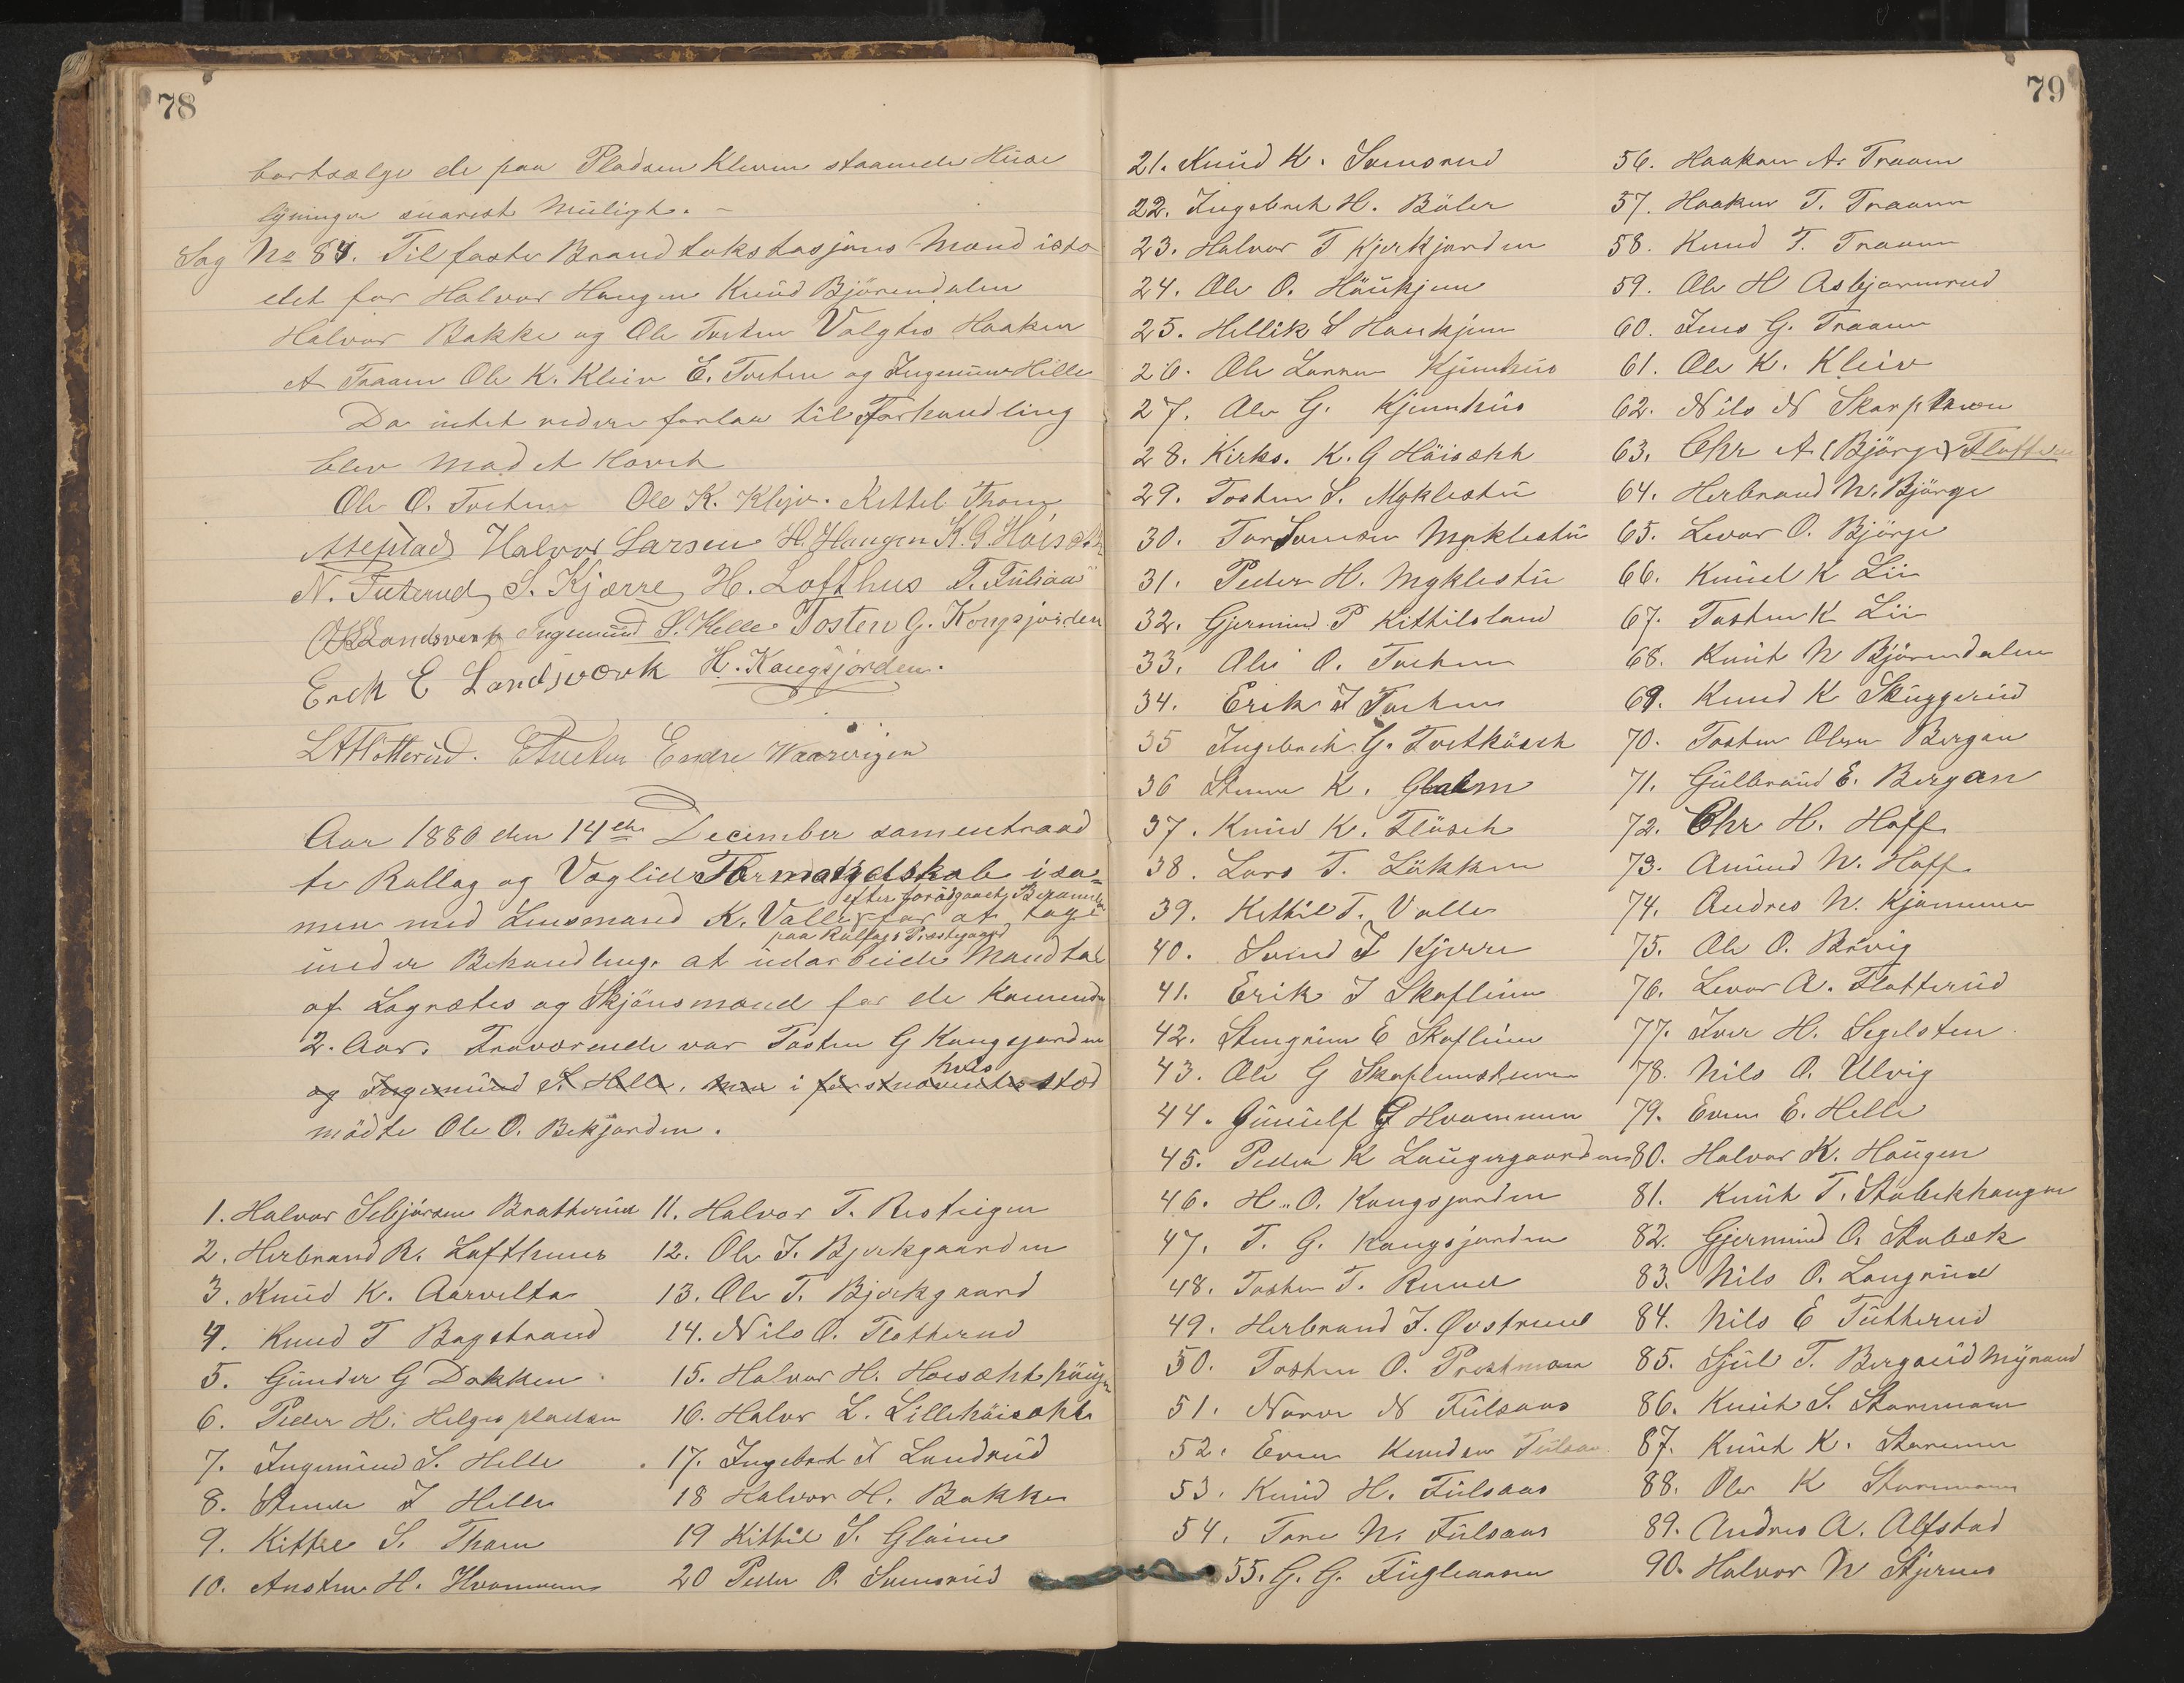 78
bortsælge de paa Pladsen Kleven staaende Huse
bygninger snarest muligt. –
Sag No 84. Til faste Brandtakstasjons Mænd iste-
det for Halvor Haugen Knud Björendalen
Halvor Bakke og Ole Toeten Valgtes Haaken
A Traaen Ole K. Kleiv E. Toeten og Ingemund Helle
Da intet videre forlaa til Forhandling
blev Mödet hævet
Ole O. Toeten Ole K. Klejv. Kettel Thom
Halvor Larsen H. Haugen K. G. Höisæth
N. Tuterud S. Kjærre H. Lofthus T. Fulsaas
Landsverk Ingemund S. Helle Tosten G. Kongsjorden
Erek E Landsværk H. Kongsjorden.
L A Flotterud. E Tueten Endre Waarvigen
Aar 1880 den 14de December samentraad
te Rollag og Væglid Formandskab isa-
efter foregaaende
men med Lensmand K. Valle for at tage
paa Rollags Præstegaard
under Behandling. at udarbeide Mandtal
af Lagrettes og Skjönsmænd for de kommende
2. Aar. Fraværende var Tosten G Kongsjorden
hvis
og Ingemund S. Helle, men i förstnævntes sted
mödte Ole O. Bekjorden.
1. Halvor Sebjörsen Bratterud
2. Herbrand R. Lofthuus
3. Knud K. Aarvelta
4. Knud T Bagstrand
5. Gunder G Dokken
6. Peder H. Helgespladsen
7. Ingemund S. Helle
8. Steen J Helle
9. Kittel S. Thom
10. Ansten H. Hvammen
11. Halvor T.Resteigen
12. Ole J. Bjerkgaarden
13. Ole T. Bjerkgaard
14. Nils O. Flotterud
15. Halvor H. Hoisæthhaugen
16. Halvor L. Lillehöisæth
17. Ingebret N Landrud
18 Halvor H. Bakke
19 Kittil S. Glaim
20 Peder O. Svensrud
79
21. Knud K. Svensrud
22. Ingebreth H. Böler
23. Halvor T Kjerkjorden
24. Ole O. Höukjem
25. Hellik S Haukjem
26. Ole Larsen Kjemhus
27. Ole G. Kjemhus
28. Kirks. K. G Höisæth
29. Tosten S. Myklestu
30. Tor Torsen Myklestu
31. Peder H. Myklestu
32. Gjermund P Kittilsland
33. Ole O. Toeten
34. Erik J Toeten
35 Ingebreth G. Tvetkösch
36 Steen K. Glaim
37. Knud K. Flösch
38. Lars T. Lökken
39. Kittil T. Valle
40. Svend J Kjerre
41. Erik J Skaflem
42. Stengrim E Skaflem
43. Ole G Skaflemstuen
44. Gunulf G Hvammen
45. Peder K Laugergaarden
46. H. O. Kongsjorden
47. T. G. Kongsjorden
48. Tosten T. Ruud
49. Herbrand J. Øvstrud
50. Tosten O. Prestmoen
51. Narve N Fulsaas
52. Even Knudsen Fulsaas
53. Knud H. Fulsaas
54. Tore N. Fulsaas
55. G. G. Fugleaasen
56. Haaken A. Traaen
57. Haaken T. Traaen
58. Knud T. Traaen
59. Ole H Asbjørnsrud
60. Jens G. Traaen
61. Ole K. Kleiv
62. Nils N Skarpmoen
63. Chr A (Björge) Flotterud
64. Herbrand N. Björge
65. Levor O. Björge
66. Knud K Lii
67. Tosten K Lii
68. Knut N Björendalen
69. Knud K Skuggerud
70. Tosten Olsen Bergan
71. Gulbrand E. Bergan
72. Chr H. Hoff
73. Amund N. Hoff
74. Andres N. Kjømmen
75. Ole O. Bævig
76. Levor A. Flotterud
77. Iver H. Segelsten
78. Nils O. Ulvig
79. Even E. Helle
80. Halvor K. Haugen
81. Knut T. Stabekhaugen
82. Gjermund O. Stabæk
83. Nils O. Langrud
84. Nils E Tutterud
85. Gjul T. Bergerud Myrand
86. Knut S. Stormoen
87. Knut K. Stormoen
88. Ole K Stormoen
89. Andres A. Alfstad
90. Halvor N Stjernes